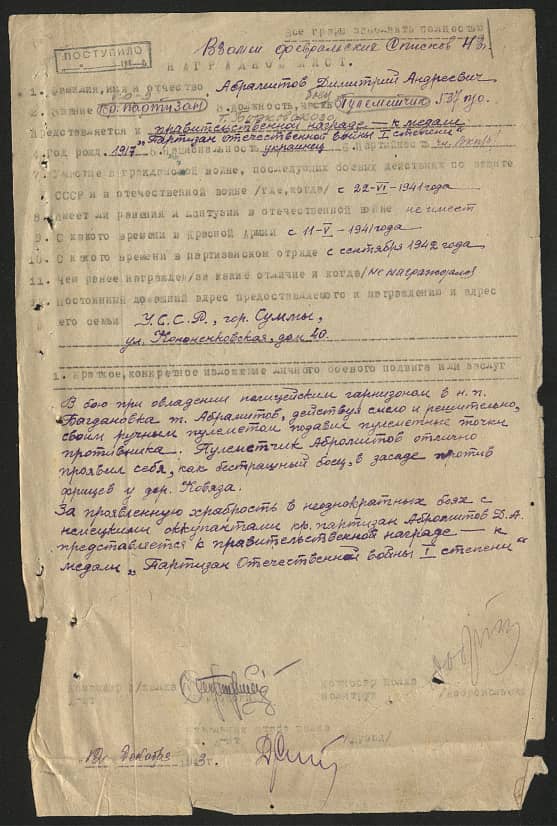 Все графы заполнять полностью
ПОСТУПИЛО
Взамен февральских списков 43г.
НАГРАДНОЙ ЛИСТ.
1. Фамилия, имя и отчество Абрамитов Димитрий Андреевич
2. Звание кр. партизан 3. должность, часть боец Пулеметчик 537 п/о.
т. Бутжтакого
представляется к правительственной награде — к медали
„Партизан отечественной войны I степени"
4. Год рожд. 1917 5. Национальность украинец 6. Партийность чл. ВКП/б/
7. Участие в гражданской войне, последующих боевых действиях по защите
СССР и в отечественной войне /где, когда/ с 22-VI-1941 года
8. Имеет ли ранения и контузии в отечественной войне не имеет
9. С какого времени в Красной Армии с 11-V-1941 года
10. С какого времени в партизанском отряде с сентября 1942 года
11. Чем ранее награжден/за какие отличие и когда/ не награждался
12. Постоянный домашний адрес предоставляемого к награждению и адрес
его семьи У.С.С.Р., гор. Суммы,
ул. Кононенковская, дом 40.
1. Краткое, конкретное изложение личного боевого подвига или заслуг
В бою при овладении полицейским гарнизоном в н.п.
Багдановка т. Абрамитов, действуя смело и решительно,
своим ручным пулеметом подавил пулеметные точки
противника. Пулеметчик Абромитов отлично
проявил себя, как бесстрашный боец, в засаде против
фрицев у дер. Ковяза.
За проявленную храбрость в неоднократных боях с
немецкими оккупантами кр. партизан Абромитов Д.А.
представляется к правительственной награде — к
медали „Партизан Отечественной войны I степени"
Командир п/полка
комиссар полка
политрук
начальник штаба полка
10 декабря 1943 г.